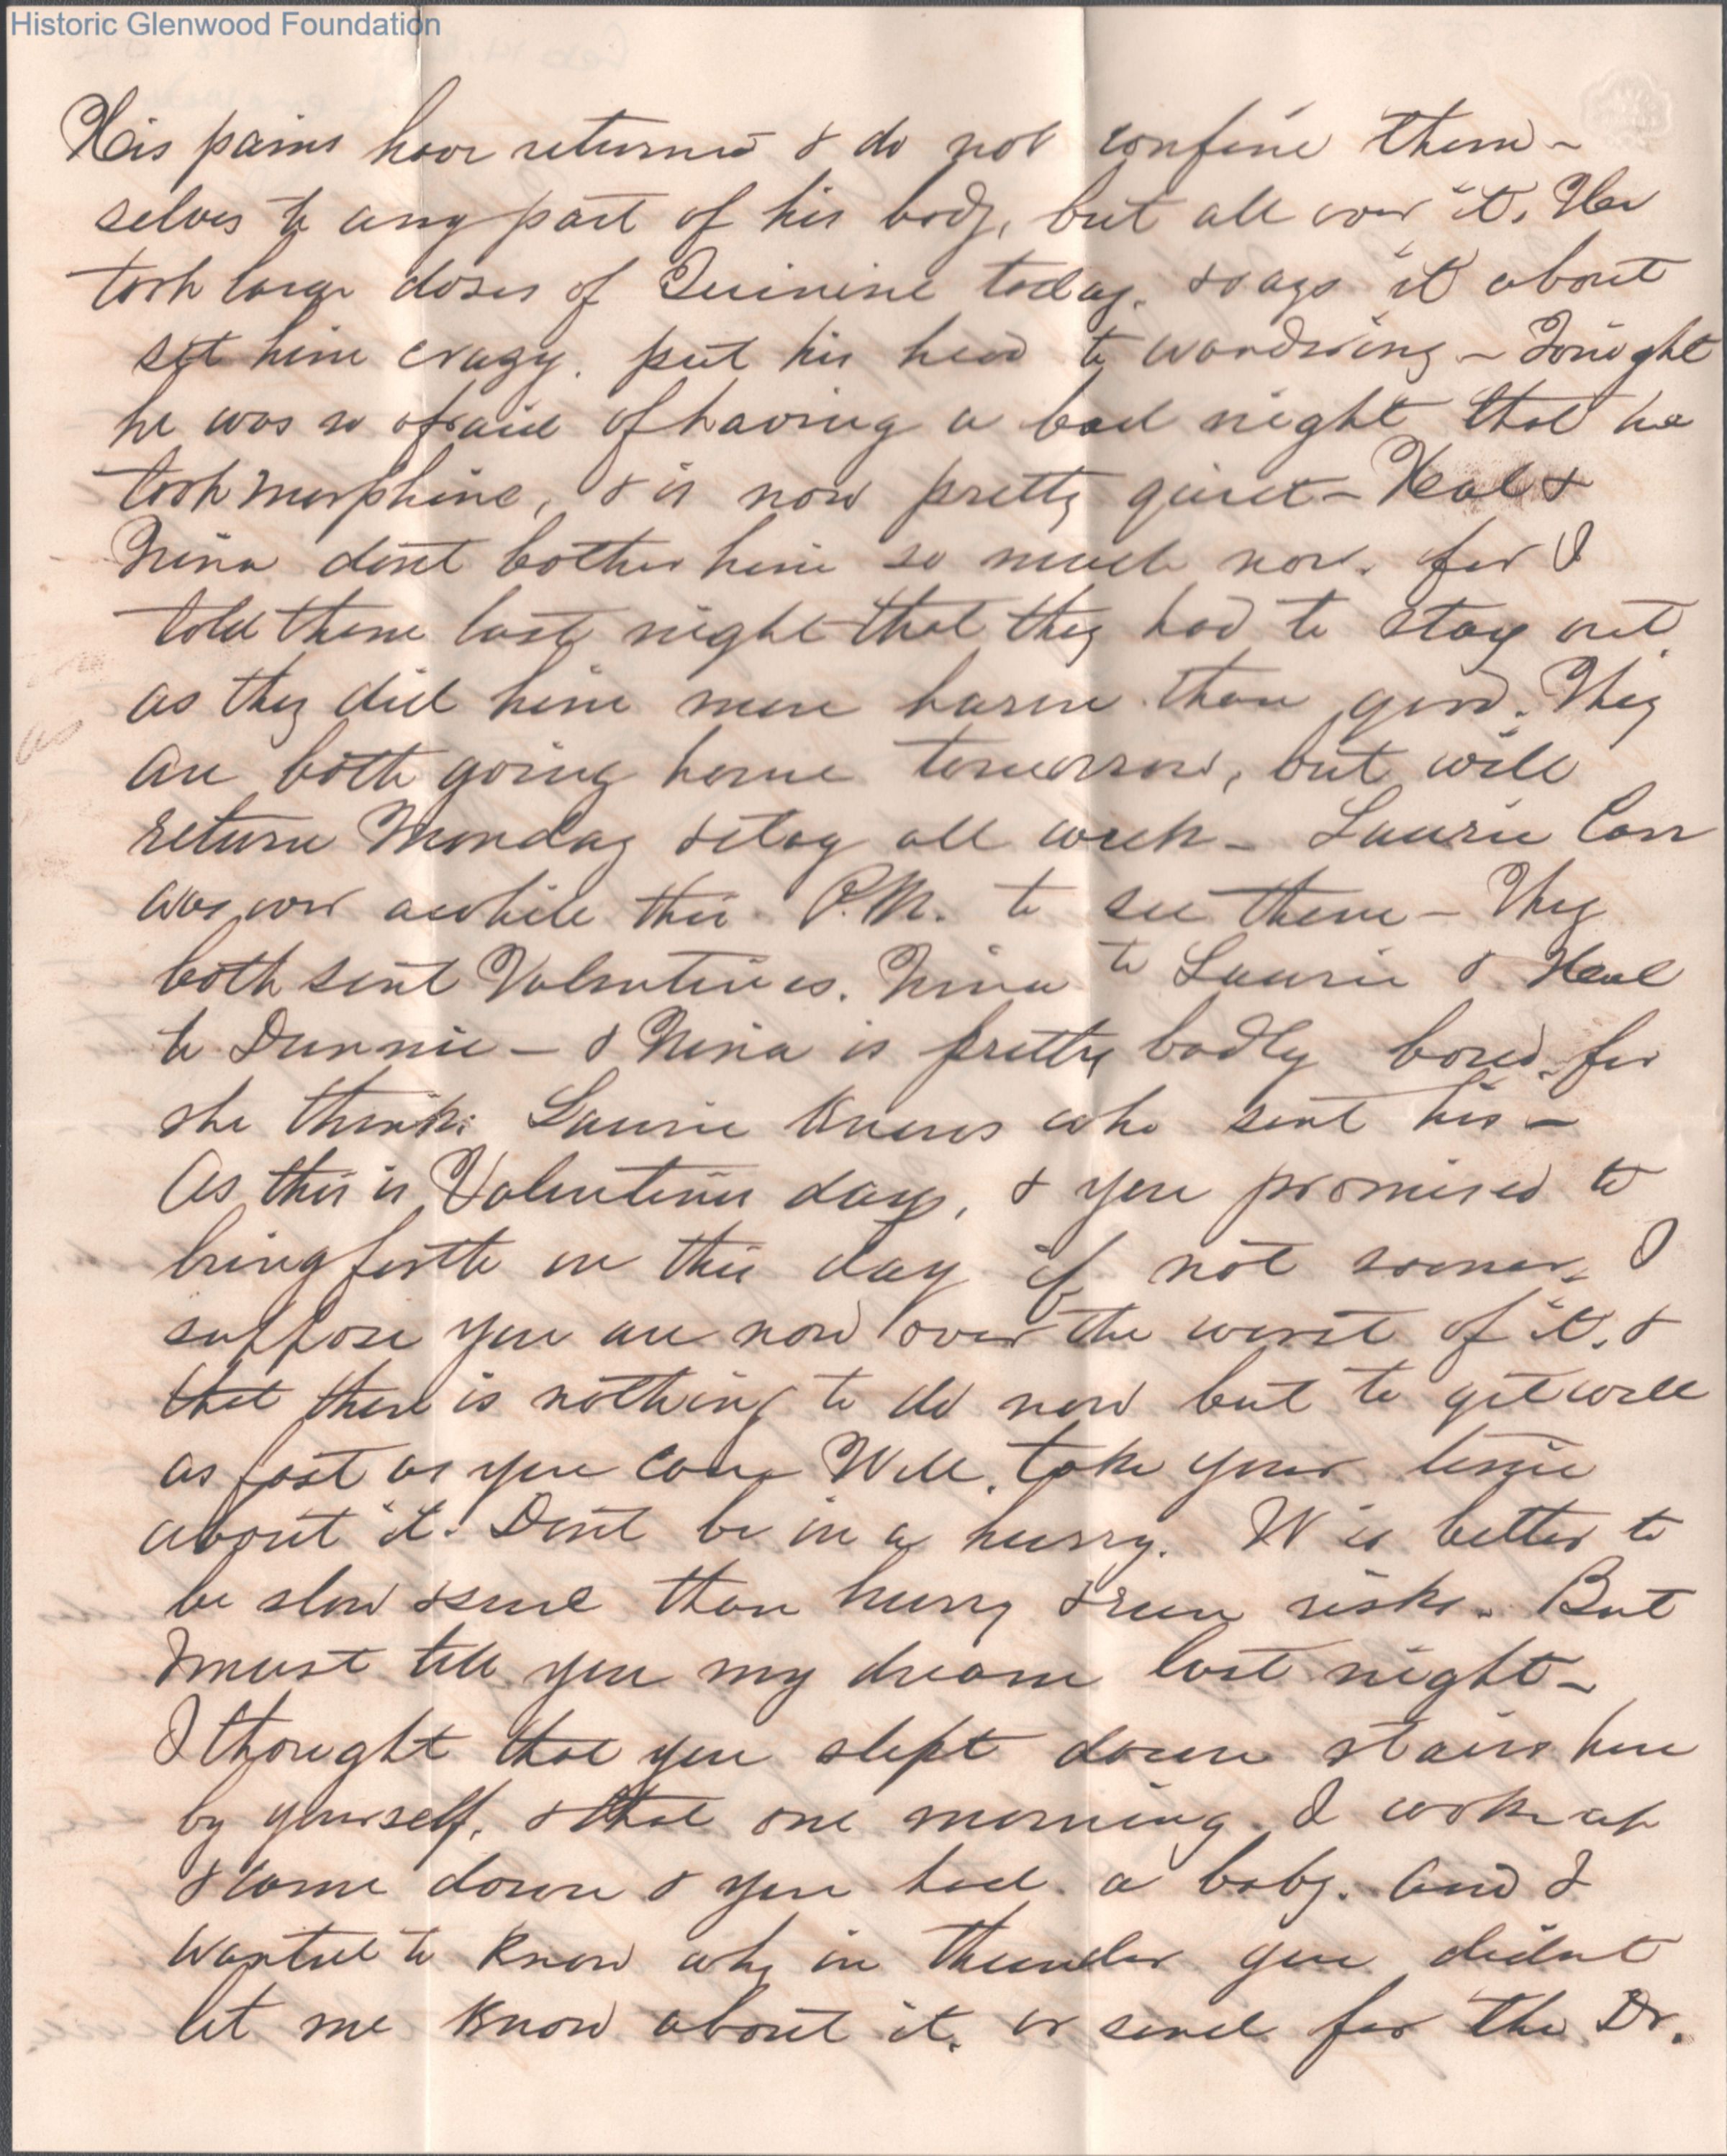 Historic Glenwood Foundation
His pains have returned & do not confine them-
selves to any part of his body, but all over it. He
took large doses of Quinine today. & says it about
set him crazy. put his head to wandering - Tonight
he was so afraid of having a bad night that he
took morphine, & is now pretty quiet - Heal &
Nina dont bother him so much now. for I
told them last night that they had to stay out
as they did him more harm than good. They
are both going home tomorrow, but will
return Monday & stay all week - Laurie Carr
was over awhile this P.M. to see them - They
both sent Valentines. Nina to Laurie & Heal
to Dunnie - & Nina is pretty badly bored for
she thinks Laurie knows who sent his -
As this is Valentines day, & you promised to
bring forth on this day if not sooner, I
suppose you are now over the worst of it. &
that there is nothing to do now but to get well
as fast as you can. Well, take your time
about it. Dont be in a hurry. It is better to
be slow & sure than hurry & run risks. But
I must tell you my dream last night -
I thought that you slept down stairs here
by yourself, & that one morning I woke up
& came down & you had a baby. And I
wanted to know why in thunder you didnt
let me know about it. or send for the Dr.